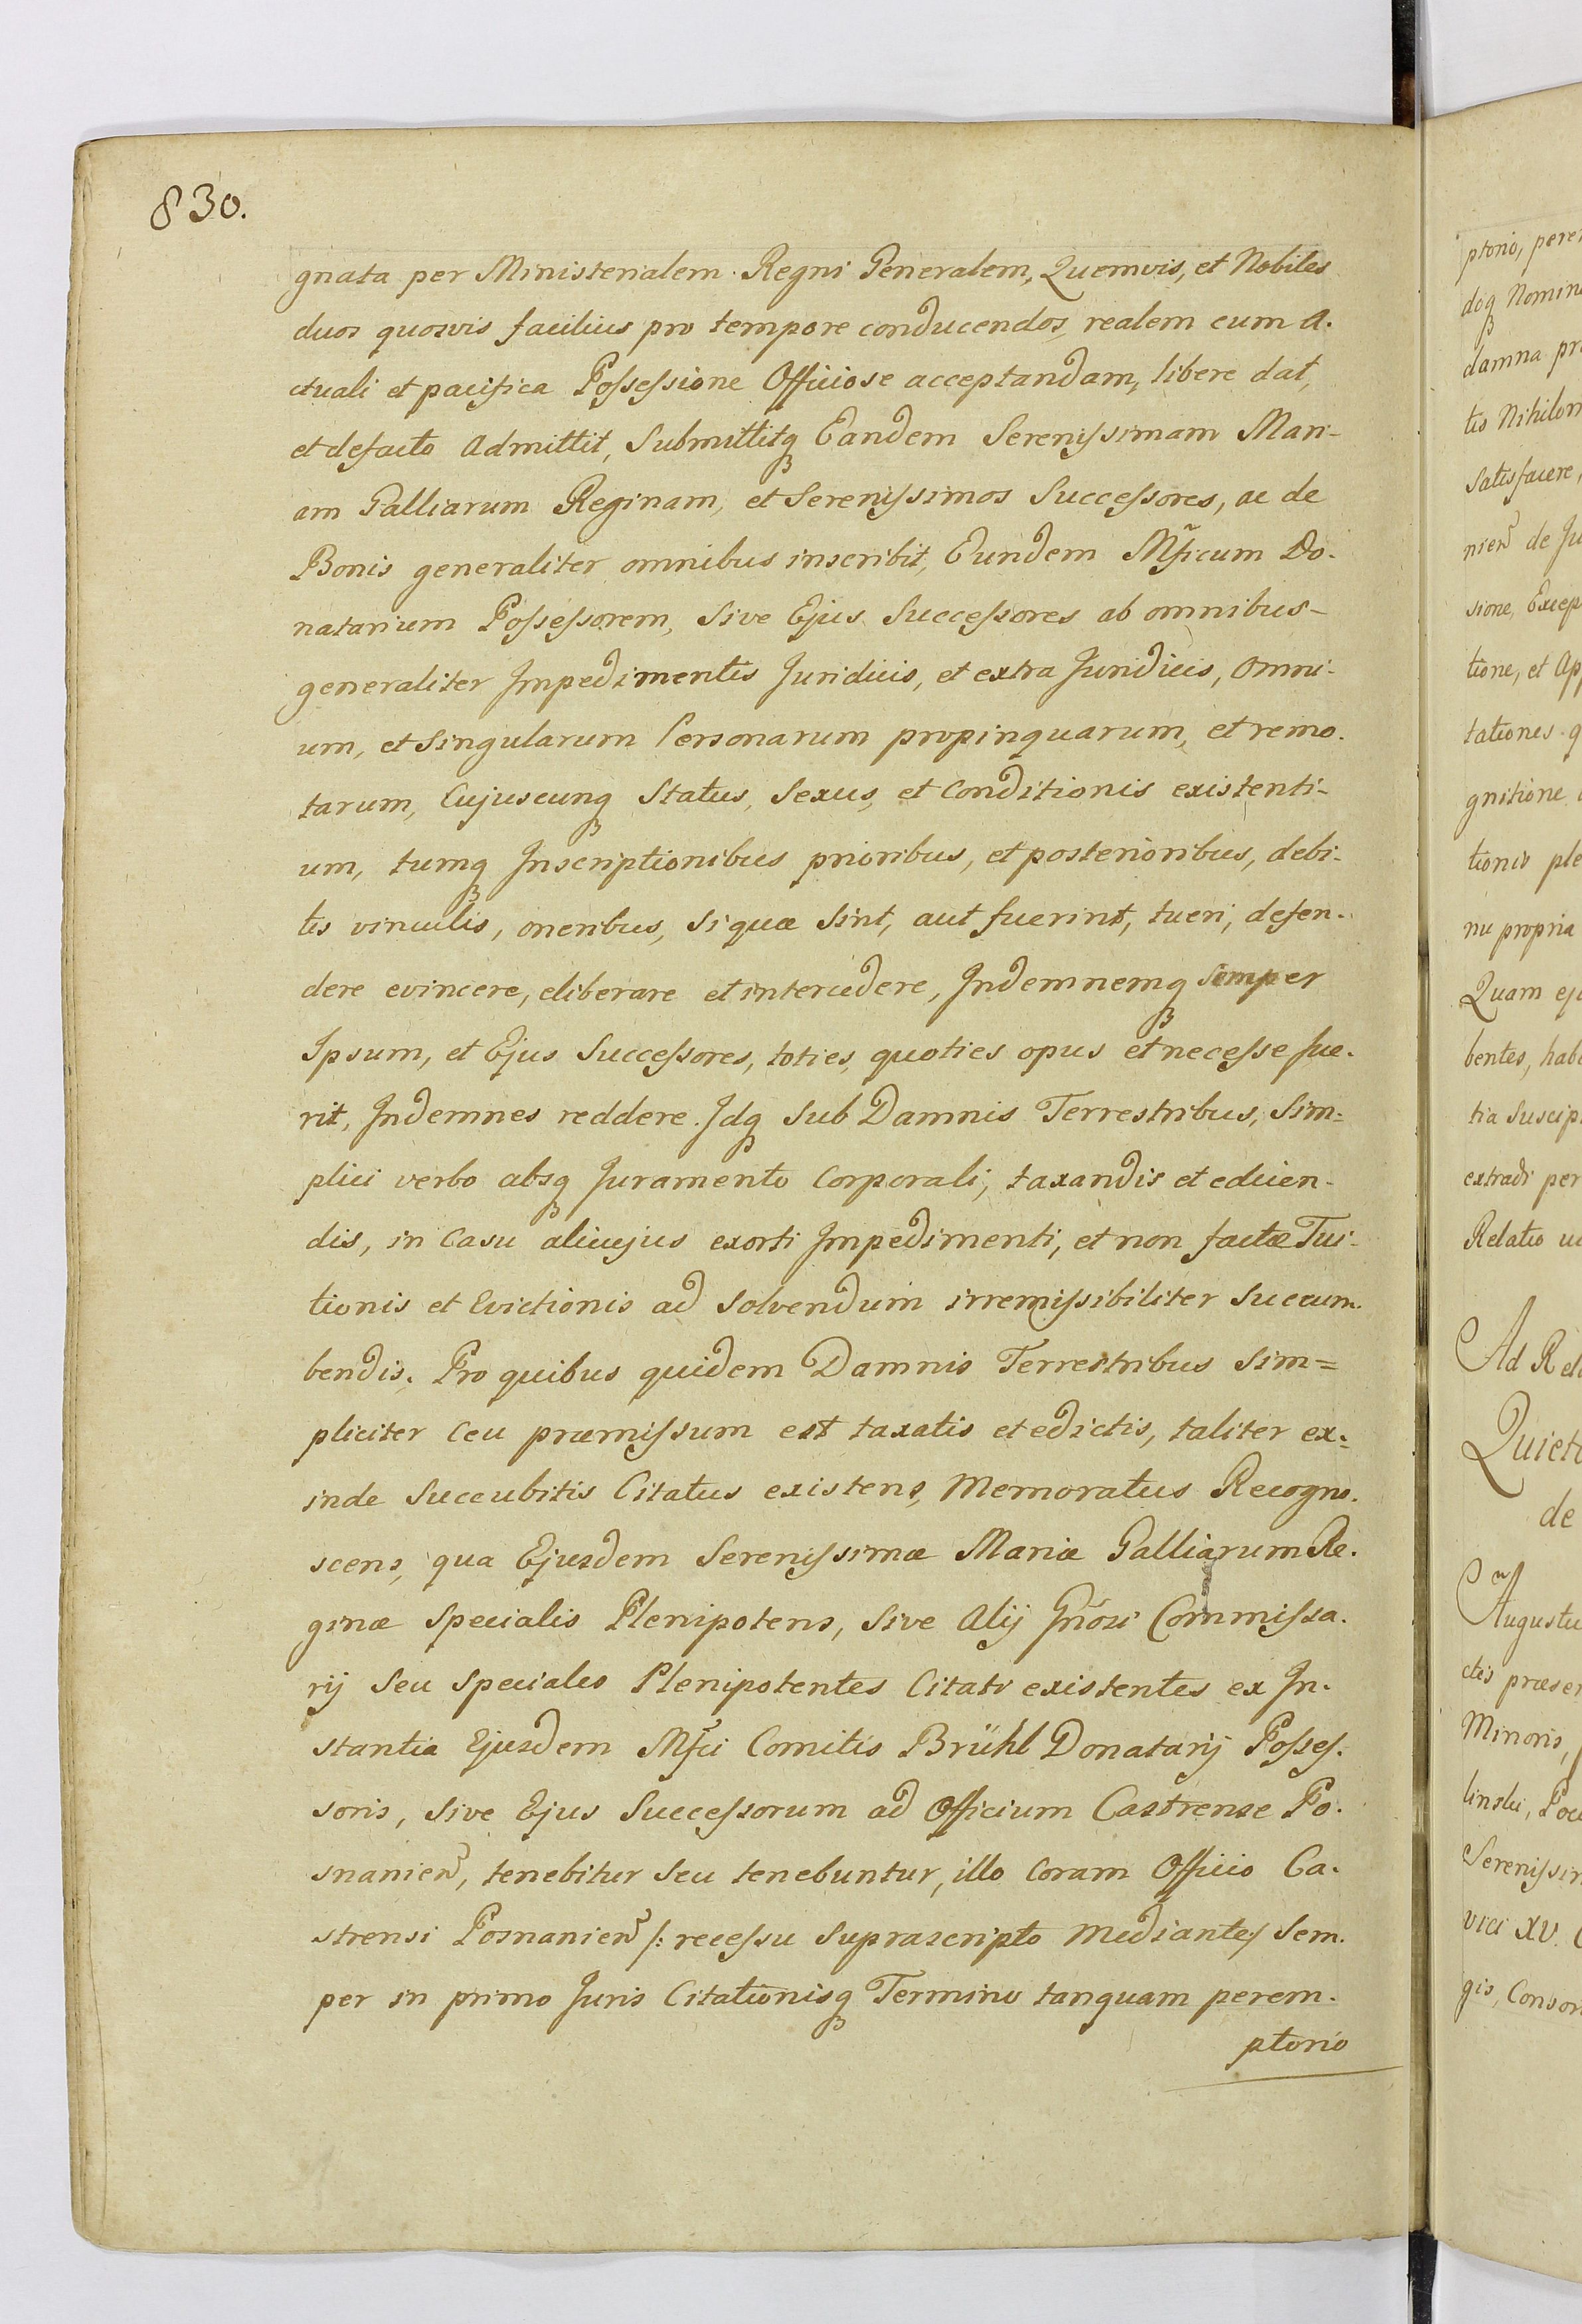 830.
gnata per Ministerialem Regni Generalem, Quemvis, et Nobiles
duos quosvis facilius pro tempore conducendos, realem cum A.
ctuali et pacifica Possessione Officiose acceptandam, libere dat,
et defacto Admittit, Submittitq₃ Eandem Serenissimam Mari-
am Galliarum Reginam, et Serenissimos Successores, ac de
Bonis generaliter omnibus inscribit, Eundem Mficum Do.
natarium Possessorem, Sive Ejus Successores ab omnibus-
generaliter Impedimentis Juridicis, et extra Juridicis, Omni-
um, et Singularum Personarum propinquarum, et remo.
tarum, Cujuscunq₃ Status, Sexus, et Conditionis existenti-
um, tumq₃ Inscriptionibus prioribus, et posterioribus, debi-
tis vinculis, oneribus, si quæ Sint, aut fuerint, tueri, defen-
dere evincere, eliberare et intercedere, Indemnemq₃ Semper
Ipsum, et Ejus Successores, toties, quoties opus et necesse fue.
rit, Indemnes reddere. Idq₃ Sub Damnis Terrestribus, Sim=
plici verbo absq₃ Juramento Corporali, taxandis et edicen-
dis, in Casu alicujus exorti Impedimenti, et non factæ Tui-
tionis et Evictionis ad Solvendum irremissibiliter Succum-
bendis. Pro quibus quidem Damnis Terrestribus Sim=
pliciter Ceu præmissum est taxatis et edictis, taliter ex=
inde Succubitis Citatus existens, Memoratus Recogno.
scens, qua Ejusdem Serenissimæ Mariæ Galliarum Re.
ginæ Specialis Plenipotens, Sive Alij Gñosi Commissa.
rij Seu Speciales Plenipotentes Citati existentes ex In-
stantia Ejusdem Mfci Comitis Brühl Donatarij Posses.
soris, Sive Ejus Successorum ad Officium Castrense Po.
snanien, tenebitur Seu tenebuntur, illo Coram Officio Ca.
strensi Posnanien /: recessu Suprascripto Mediante/ Sem.
per in primo Juris Citationisq₃ Termino tanquam perem-
ptorio
ptorio,
doq₃ Nomin
damna
tis Nihilom
Satisfacere,
nien de Ju
sione, Excep
tione, et Ap
tationes
gnitione
tionis ple
nu propria
Quam
bentes,
tia Suscip
extradi per
Relatio
Ad Rel
Quiet
de
Augustu
ctis præsen
Minoris,
linski,
Serenissi
vici XV.
gis, Consor